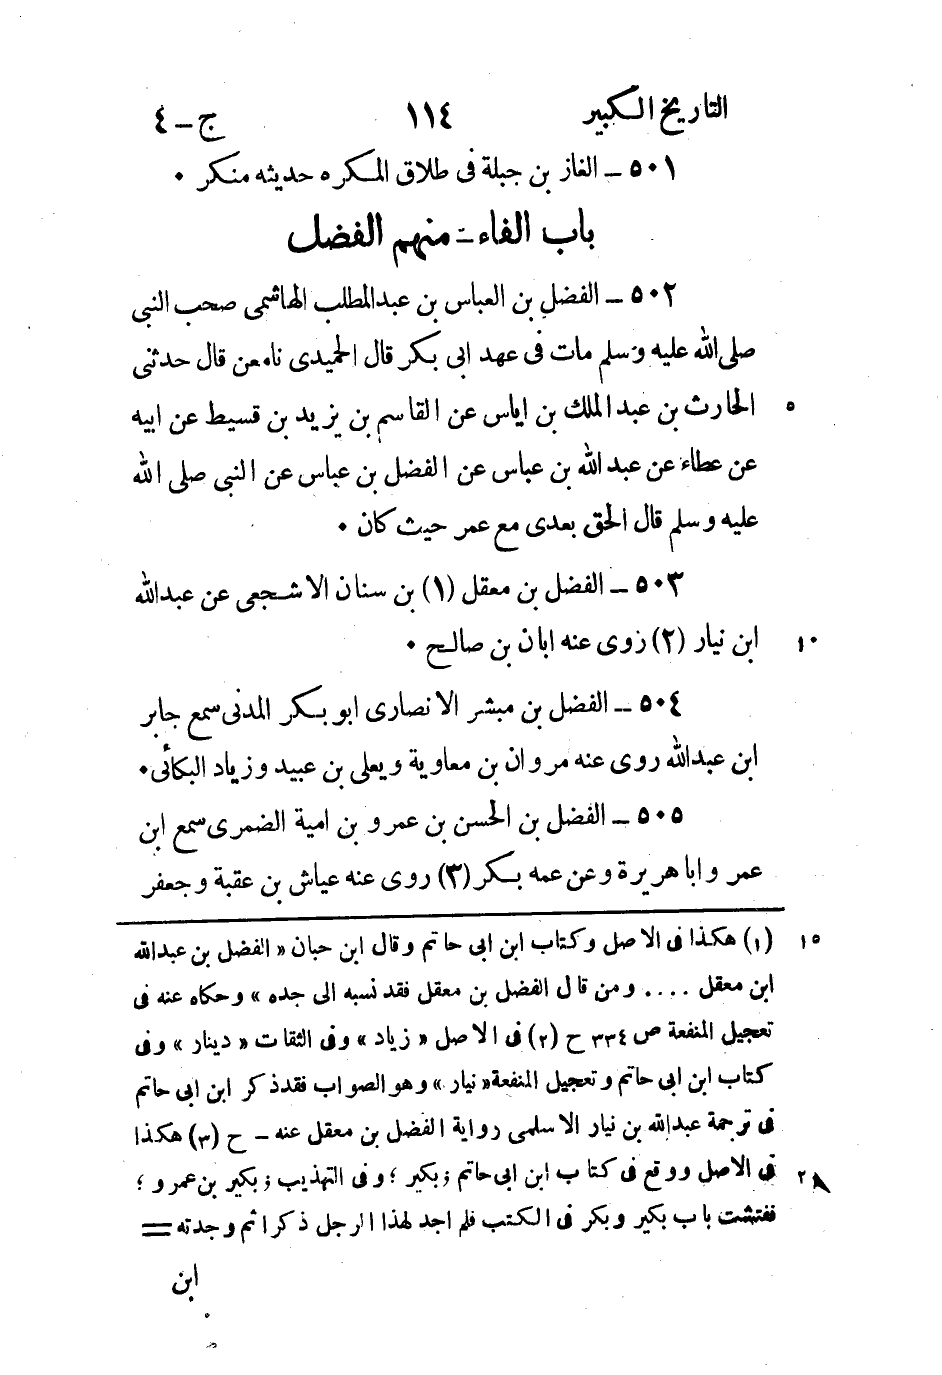 التاريخ الكبير ١١٤ ج-٤
٥٠١ ـ الغاز بن جبلة فى طلاق المكره حديثه منكر ٠
باب الفاء ـ منهم الفضل
٥٠٢ ـ الفضل بن العباس بن عبدالمطلب الهاشمى صحب النبى
صلى الله عليه وسلم مات فى عهد ابى بكر قال الحميدى نا معن قال حدثنى
الحارث بن عبد الملك بن اياس عن القاسم بن يزيد بن قسيط عن ابيه ٥
عن عطاء عن عبد الله بن عباس عن الفضل بن عباس عن النبى صلى الله
عليه وسلم قال الحق بعدى مع عمر حيث كان ٠
٥٠٣ ـ الفضل بن معقل (١) بن سنان الاشجعى عن عبدالله
ابن نيار (٢) روى عنه ابان بن صالح ٠ ١٠
٥٠٤ ـ الفضل بن مبشر الانصارى ابو بكر المدنى سمع جابر
ابن عبدالله روى عنه مروان بن معاوية ويعلى بن عبيد وزياد البكائى ٠
٥٠٥ ـ الفضل بن الحسن بن عمرو بن امية الضمرى سمع ابن
عمر واباهريرة وعن عمه بكر (٣) روى عنه عياش بن عقبة وجعفر
(١) هكذا فى الاصل وكتاب ابن ابى حاتم وقال ابن حبان « الفضل بن عبدالله ١٥
ابن معقل .... ومن قال الفضل بن معقل فقد نسبه الى جده » وحكاه عنه فى
تعجيل المنفعة ص ٣٣٤ ح (٢) فى الاصل « زياد » وفى الثقات « دينار » وفى
كتاب ابن ابى حاتم وتعجيل المنفعة « نيار » وهو الصواب فقد ذكر ابن ابى حاتم
فى ترجمة عبدالله بن نيار الاسلمى رواية الفضل بن معقل عنه ـ ح (٣) هكذا
فى الاصل ووقع فى كتاب ابن ابى حاتم ؛ بكير ؛ وفى التهذيب ؛ بكير بن عمرو ؛
ففتشت باب بكير وبكر فى الكتب فلم اجد لهذا الرجل ذكرا ثم وجدته =
ابن